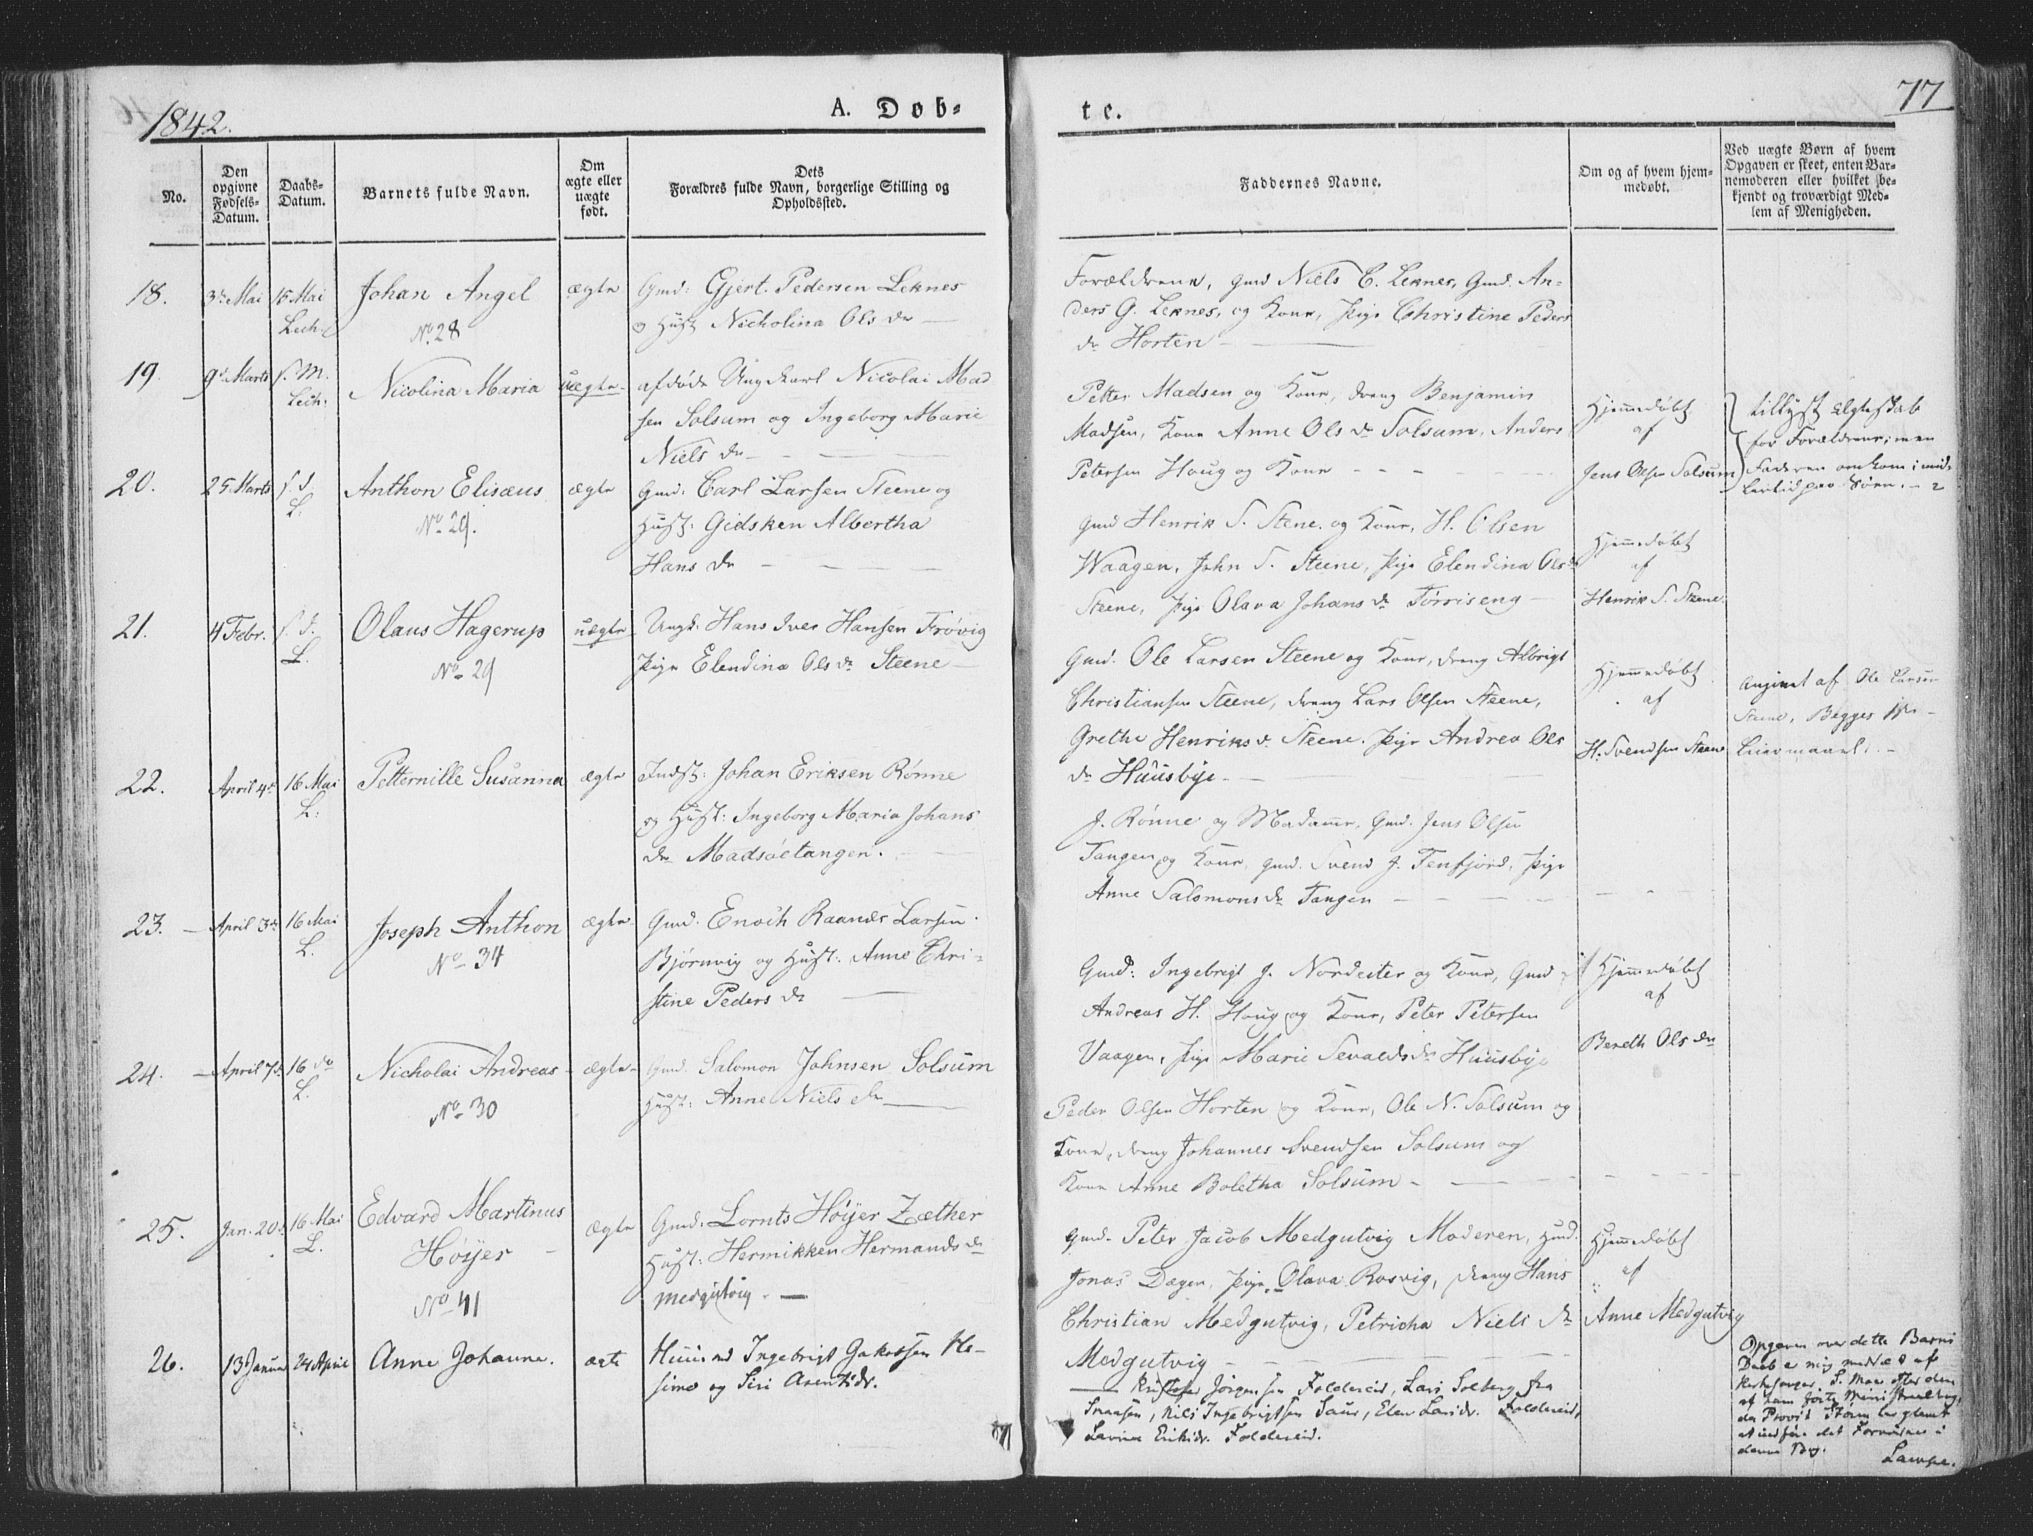 1842.
A. Døb=
No.
Den
opgivne
Fødsels-
Datum.
Daabs-
Datum.
Barnets fulde Navn.
Om
ægte eller
uægte
født.
Dets
Forældres fulde Navn, borgerlige Stilling og
Opholdssted.
18.
3de Mai
15 Mai
Lech:
Johan Angel
No. 28
ægte
Gmd: Gjert Pedersen Leknes
o Hust Nicholina Ols dr —
19.
9de Marts
s. M.
Lech.
Nicolina Maria
uægte
afdøde Ungekarl Nicolai Mad
sen Solsum og Ingeborg Marie
Niels dr
20.
25 Marts
s. d.
L.
Anthon Elisæus
No 29.
ægte
Gmd: Carl Larsen Steene og
Hust: Gidsken Albertha
Hans dr
21.
4 Febr.
s. d.
L.
Olaus Hagerup
No 29
uægte
Ungk: Hans Iver Hansen Frøvig
Pige Elendina Ols dr Steene
22.
April 4de
16 Mai
L.
Petternille Susanna
ægte
Indst: Johan Eriksen Rønne
og Hust: Ingeborg Maria Johans
dr Madsøetangen.
23.
April 3de
16 Mai
L.
Joseph Anthon
No 34
ægte
Gmd. Enoch Raanæs Larsen
Bjørnvig og Hust: Anne Chri-
stine Peders dr
24.
April 7de
16 do
L.
Nicholai Andreas
No 30
ægte
Gmd. Salomon Johnsen Solsum
Hust: Anne Niels dr
25.
Jan. 20de
16 Mai
L.
Edvard Martinus
Høyer
No 41
ægte
Gmd: Lornts Høyer Zæther
Hust: Hermikken Hermands dr
Medgutvig
26.
13 Januar
24 April
Anne Johanne.
ægte
Huusmd Ingebrigt Jakobsen
og Siri Arentsdr.
77
te.
Faddernes Navne.
Om og af hvem hjem-
medøbt.
Ved uægte Børn af hvem
Opgaven er skeet, enten Bar-
nemoderen eller hvilket be-
kjendt og troværdigt Med-
lem af Menigheden.
Forældrene, Gmd Niels C. Leknes, Gmd. An-
ders G. Leknes, og Kone, Pige Christine Peders
dr Horten
Petter Madsen og Kone, dreng Benjamin
Madsen, Kone Anne Ols dr Solsum, Anders
Petersen Houg og Kone
Hjemmedøbt
af
Jens Olsen Solsum
tillyst Ægteskab
for Forældrene; men
Faderen omkom imid-
lertid paa Søen.
Gmd Henrik S. Stene og Kone, H. Olsen
Waagen, John S. Steene, Pige Elendina Ols dr
Steene, Pige Olava Johans dr Tørriseng
Hjemmedøbt
af
Henrik S. Steene
Gmd. Ole Larsen Steene og Kone, dreng Albrigt
Christiansen Steene, dreng Lars Olsen Steene,
Grethe Henriks dr Steene. Pige Andrea Ols
dr Huusbye.
Hjemmedøbt
af
H. Svendsen Steene
Angivet af Ole Larsen
Steene, Begges
Leiermaal.
J. Rønne og Madame, Gmd. Jens Olsen
Tangen og Kone, Gmd. Svend J. Tenfjord, Pige
Anne Salomons dr Tangen
Gmd: Ingebrigt J. Nordeiter og Kone, Gmd
Andreas H. Houg og Kone, Peter Petersen
Vaagen, Pige Marie Sevalds dr Huusbye
Hjemmedøbt
af
Bereth Ols dr
Peder Olsen Horten og Kone, Ole N. Solsum og
Kone, dreng Johannes Svendsen Solsum og
Kone Anne Boletha Solsum
Gmd. Peter Jacob Medgutvig Moderen, Hmd.
Jonas Dægen, Pige Olava Rosvig, dreng Hans
Christian Medgutvig, Petricha Niels dr
Medgutvig
Hjemmedøbt
af
Anne Medgutvig
Kristofer Jørgensen Foldereid, Lars Solberg fra
Snaasen, Nils Ingebrigtsen Saur, Elen Larsdr. Foldereid,
Lavine Eriksdr. Foldereid.
Opgaven over dette Barns
Daab er mig meddelt af
Kirkesanger S. Moe efter den
af ham førte Ministerialbog,
da Provst Storm har glemt
at indføre det Fornødne i
denne Bog.